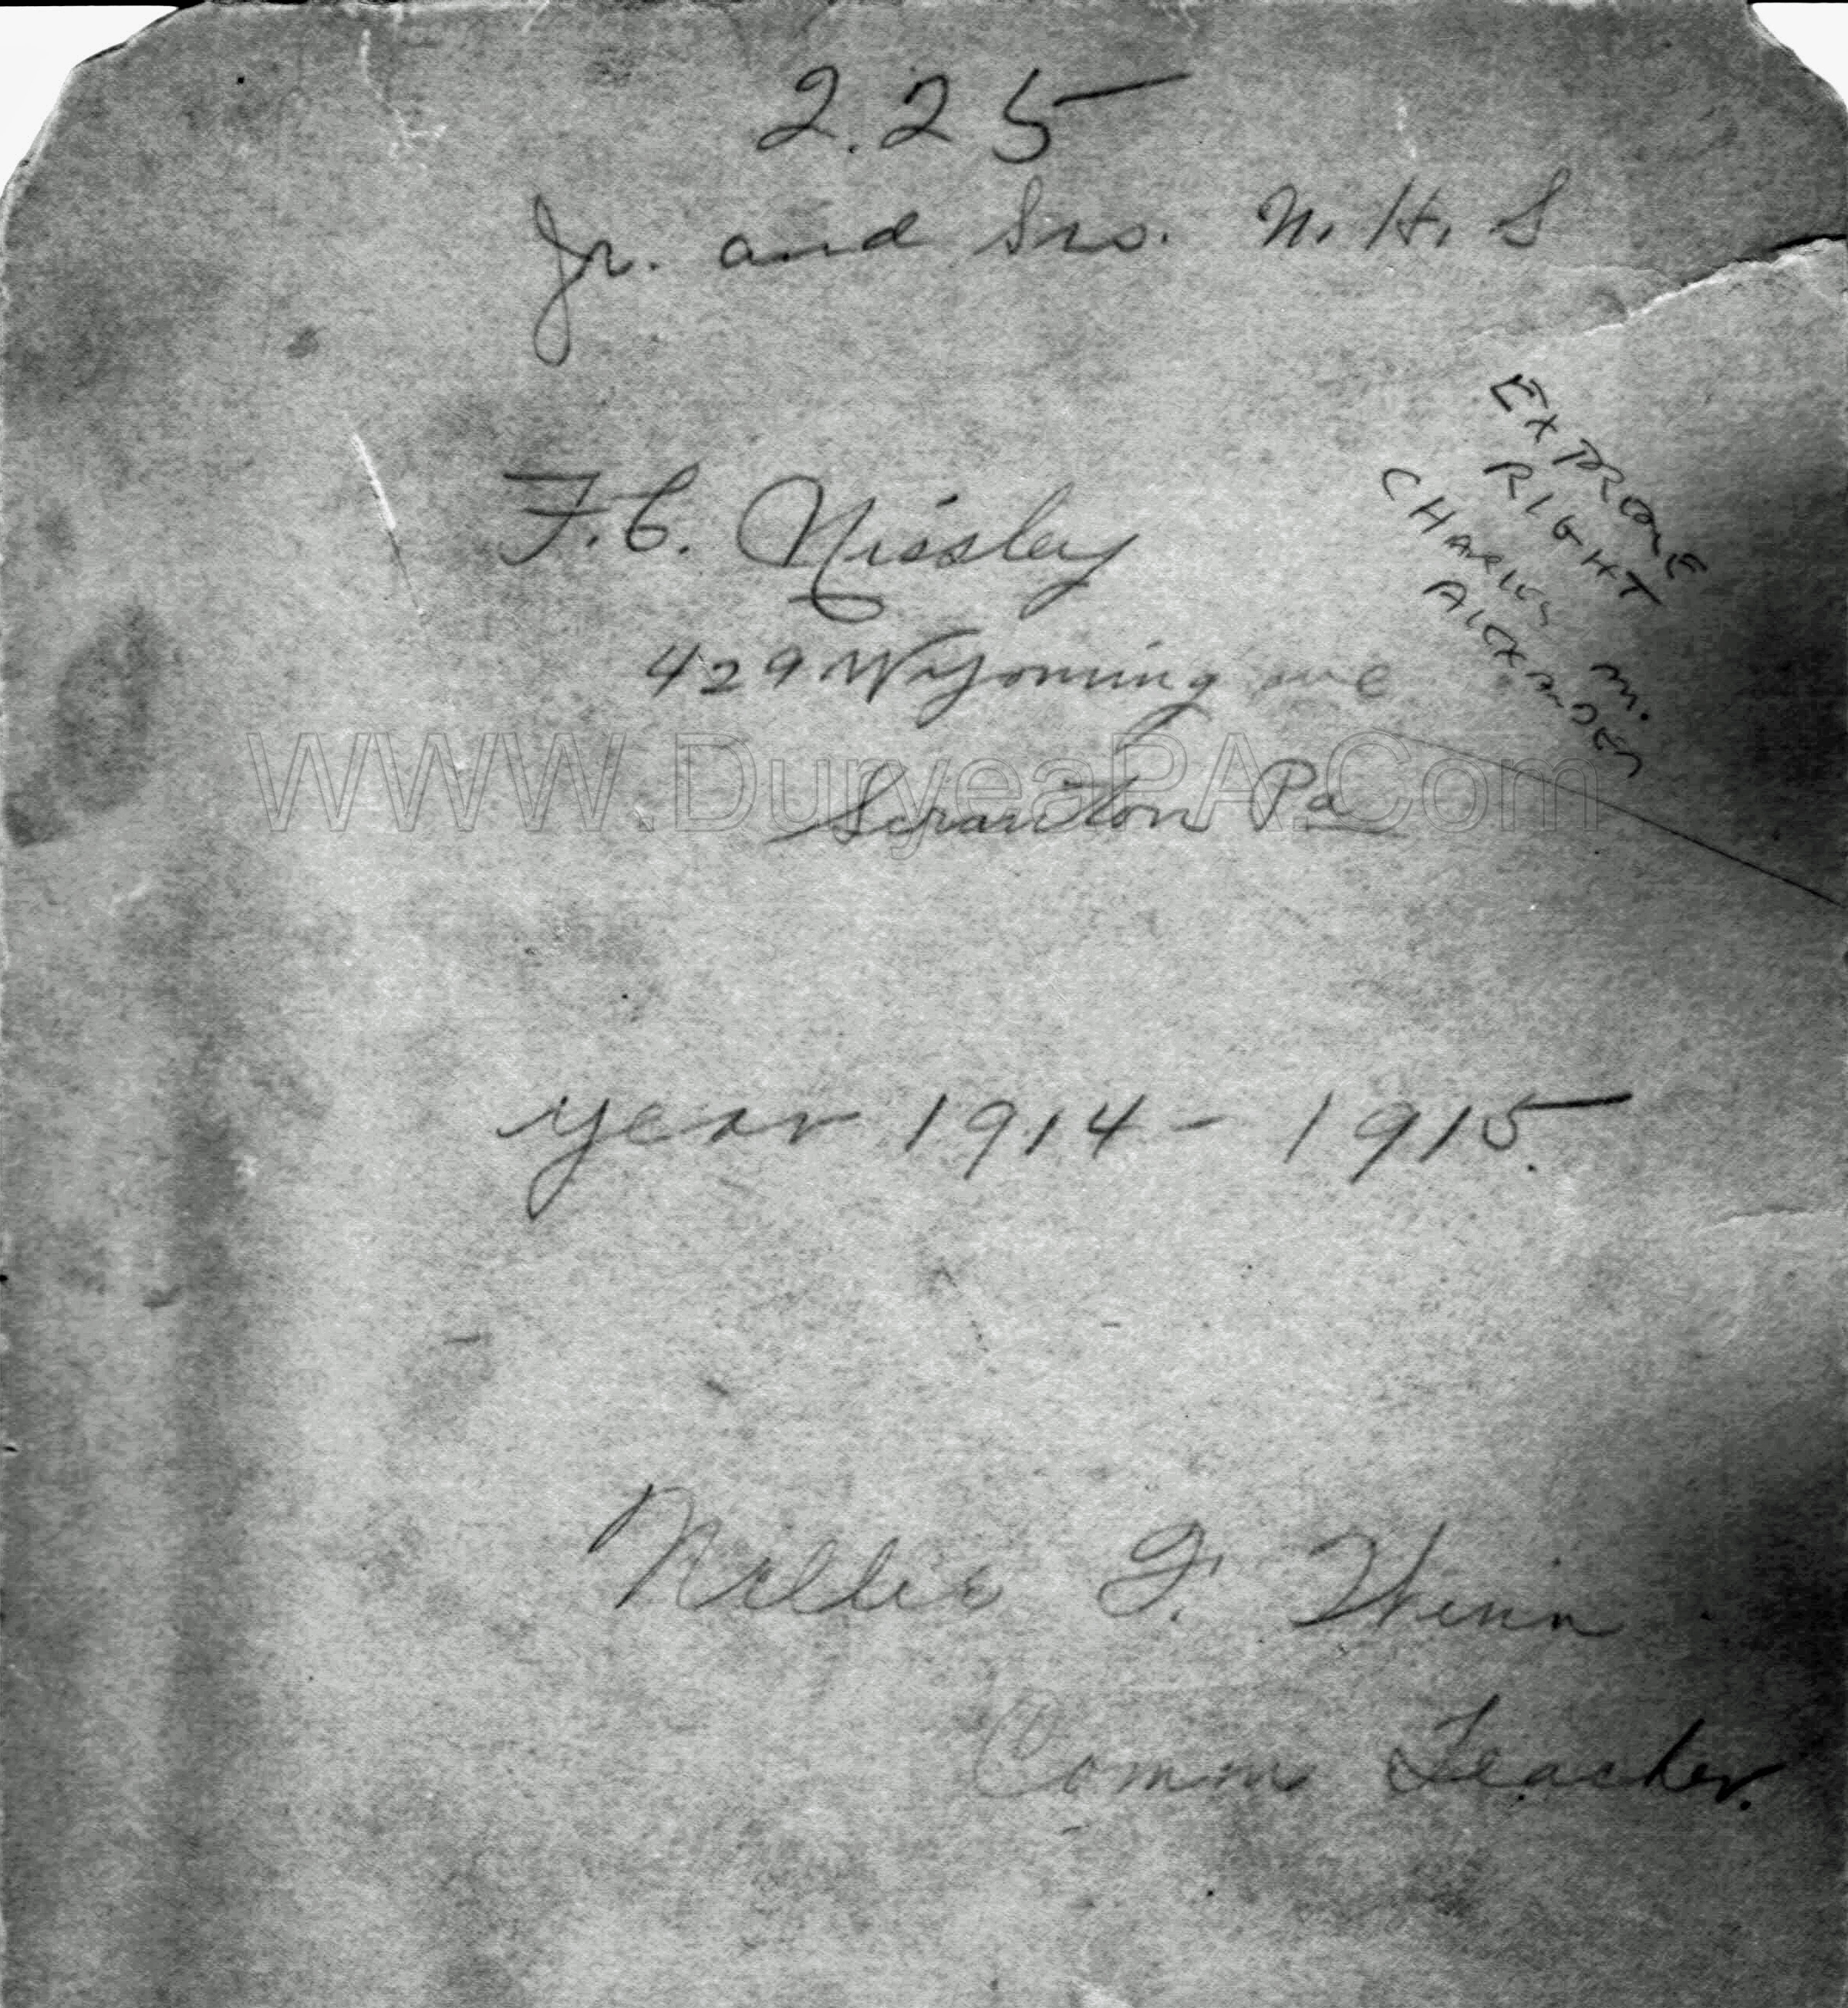 2.25
Jr. and Srs. N. H. S
F. C. Nissley
429 Wyoming ave
Scranton Pa
WWW.DuryeaPA.Com
EXTREME
RIGHT
CHARLES M.
ALEXANDER
year 1914 - 1915.
Nellie F. Winn
Comm Teacher.